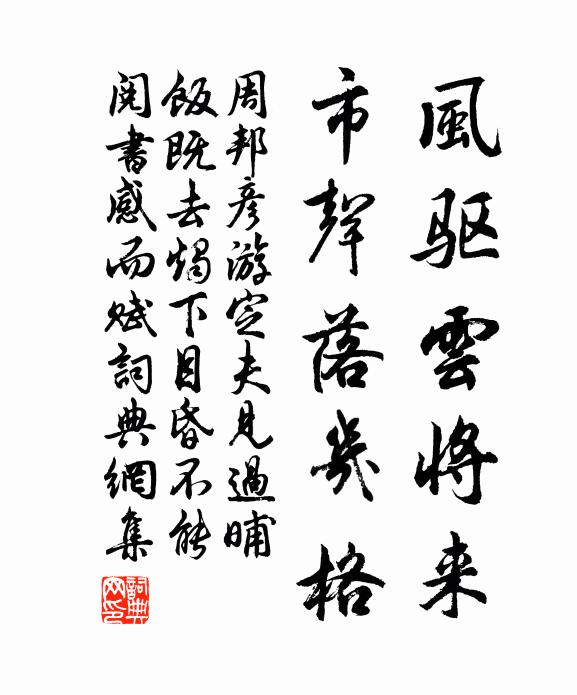 風驱雲将来
市聲落幾格
周邦彦游定夫見過晡
飯既去燭下目昏不能
閱書感而賦詞典網集
詞典网印